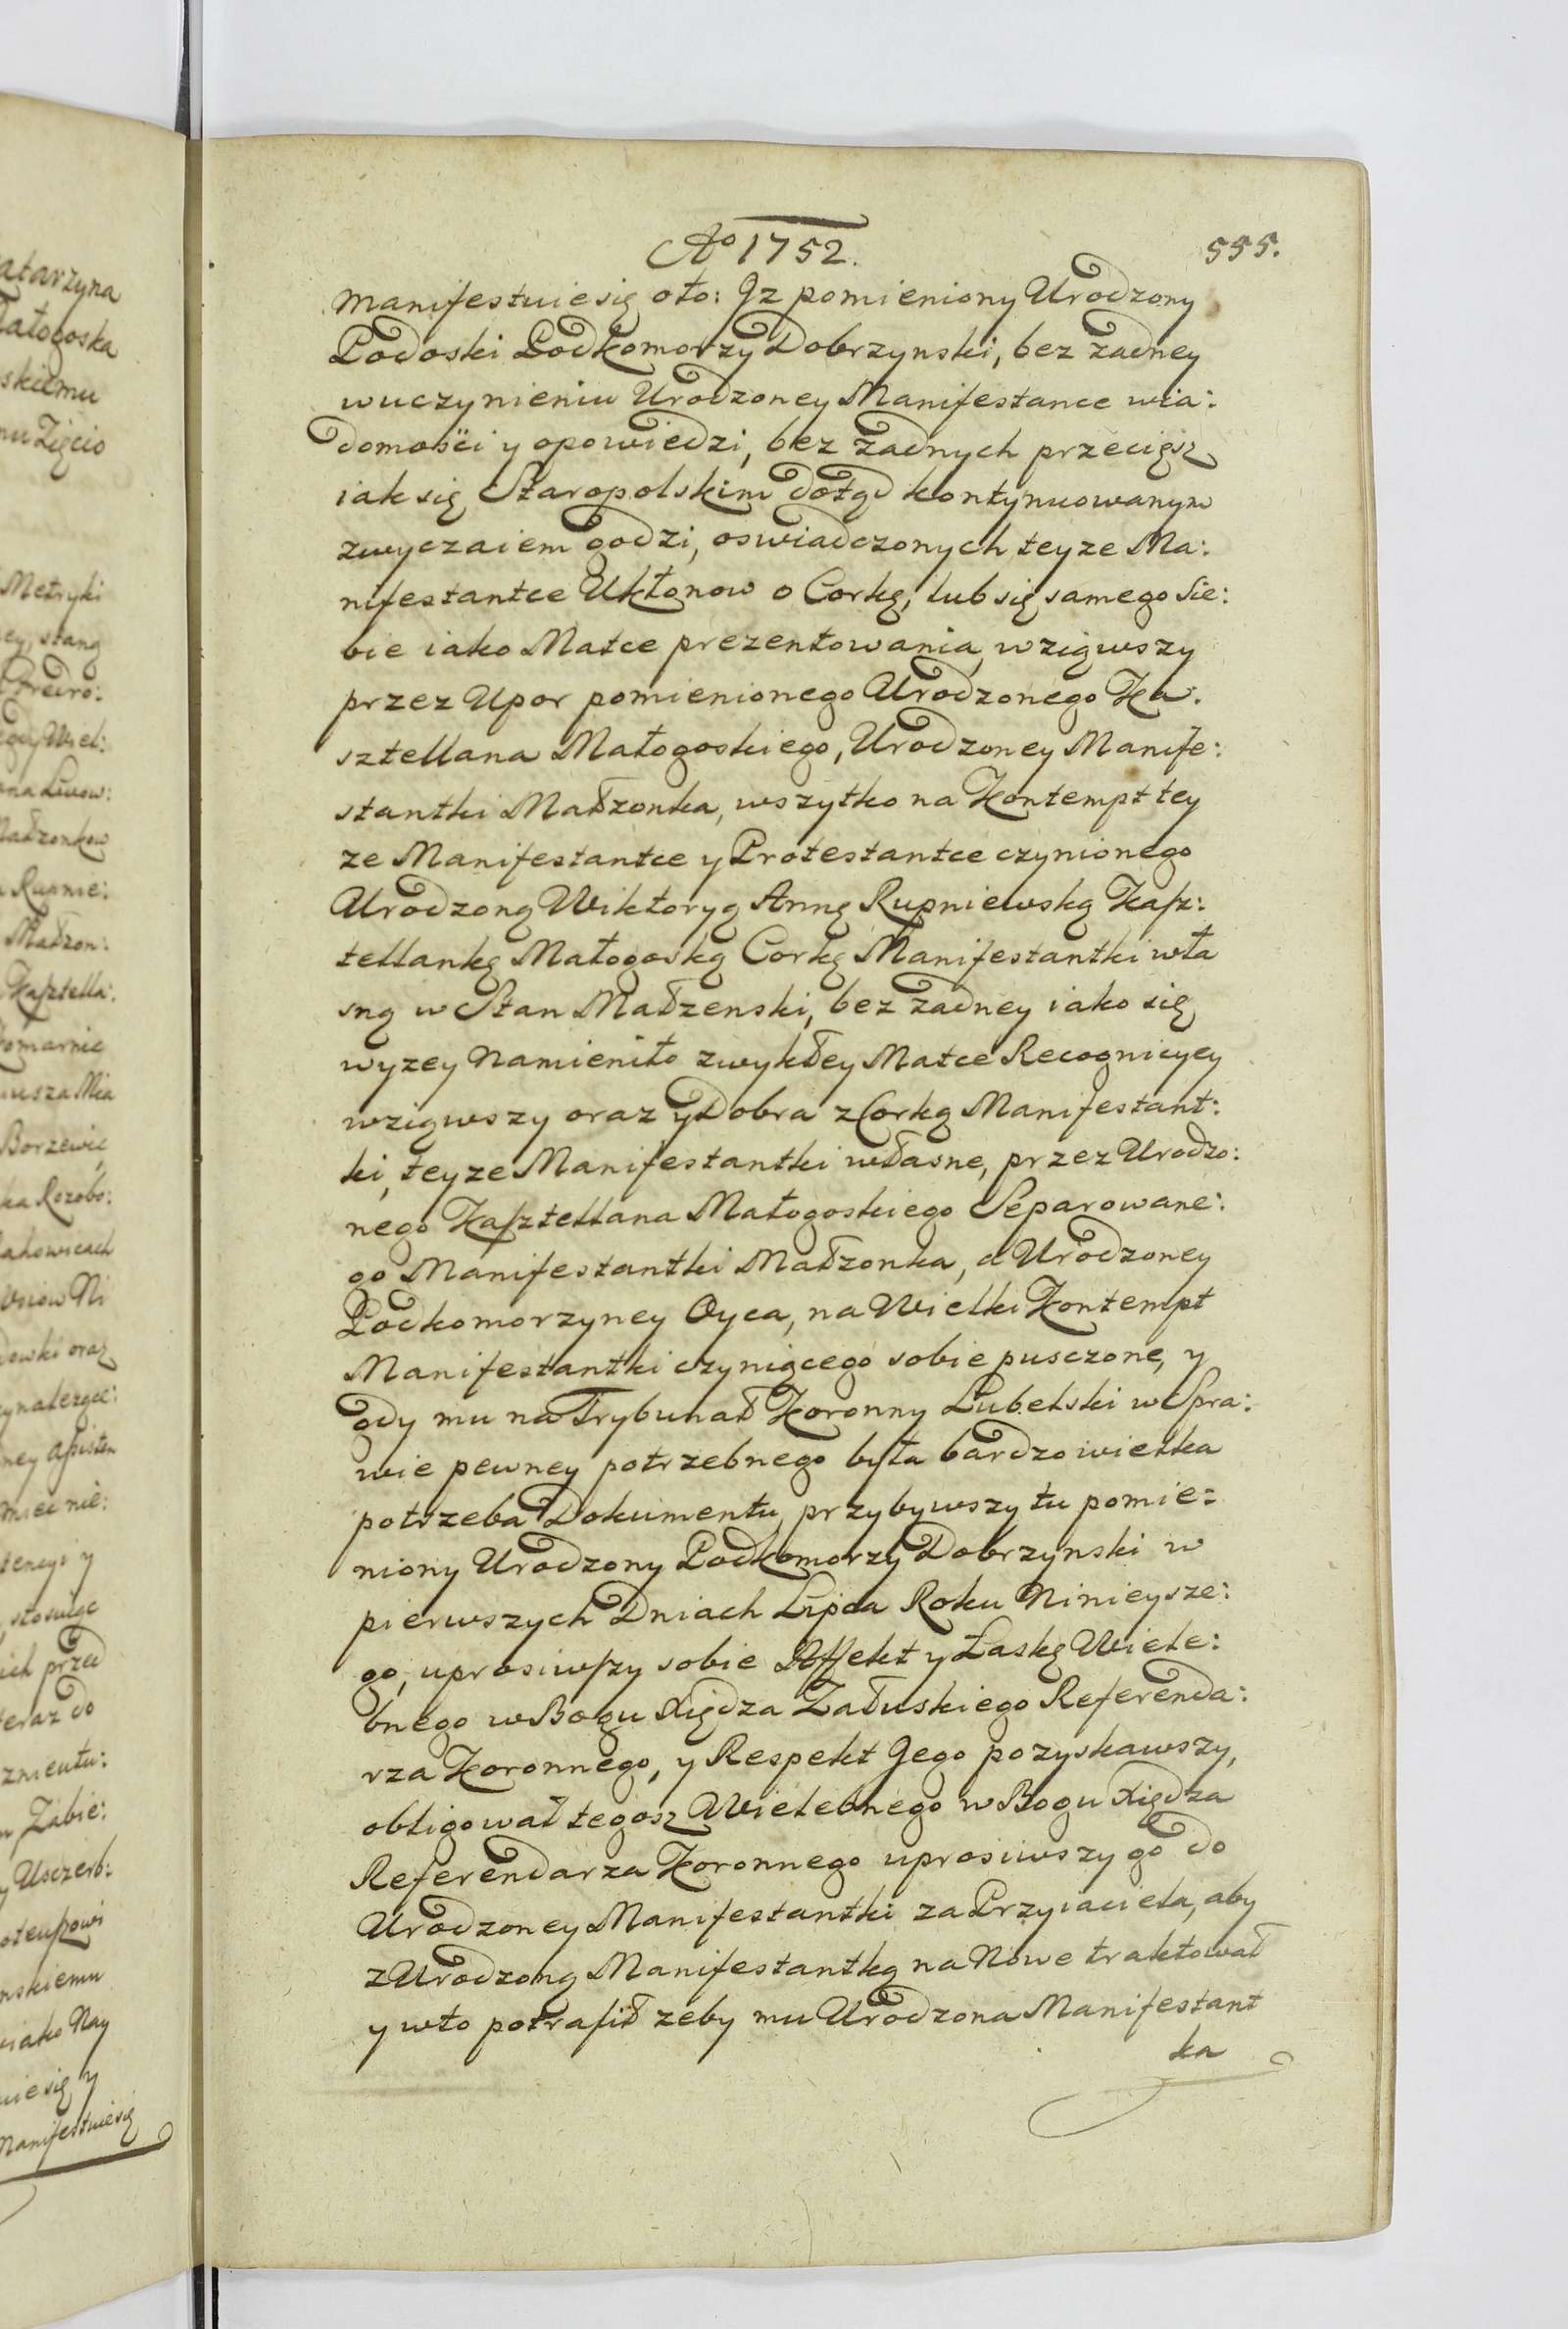 Ao 1752.
555.
manifestuie się oto: Jz pomieniony Urodzony
Podoski Podkomorzy Dobrzynski, bez zadney
wuczynieniu Urodzoney Manifestance wia:
domości y opowiedzi, bez żadnych przecięsz
iak się Staropolskim dotąd kontynuowanym
zwyczaiem godzi, oswiadczonych teyze Ma:
nifestantce Ukłonow o Corkę, lub się samego sie:
bie iako Matce prezentowania, wziąwszy
przez Upor pomienionego Urodzonego Ka:
sztellana Małogoskiego, Urodzoney Manife:
stantki Małzonka, wszytko na Kontempt tey
ze Manifestantce y Protestantce czynionego
Urodzoną Wiktoryą Annę Rupniewską Kasz:
tellankę Małogoską Corkę Manifestantki wła
sną w Stan Małzenski, bez zadney iako się
wyzey Namieniło zwykłey Matce Recognicyey
wziąwszy oraz y Dobra z Corką Manifestant:
ki, teyze Manifestantki własne, przez Urodzo:
nego Kasztellana Małogoskiego Separowane:
go Manifestantki Małzonka, a Urodzoney
Podkomorzyney Oyca, na Wielki Kontempt
Manifestantki czyniącego sobie pusczone, y
gdy mu na Trybunał Koronny Lubelski w Spra:
wie pewney potrzebnego była bardzo wielka
potrzeba Dokumentu, przybywszy tu pomie:
niony Urodzony Podkomorzy Dobrzynski w
pierwszych Dniach Lipca Roku Ninieysze:
go, uprosiwszy sobie Affekt y Łaskę Wiele:
bnego w Bogu Xiędza Załuskiego Referenda:
rza Koronnego, y Respekt Jego pozyskawszy,
obligował tegosz Wielebnego w Bogu Xiędza
Referendarza Koronnego uprosiwszy go do
Urodzoney Manifestantki za Przyiaciela, aby
z Urodzoną Manifestantką na Nowe traktował
y w to potrafił zeby mu Urodzona Manifestant
ka